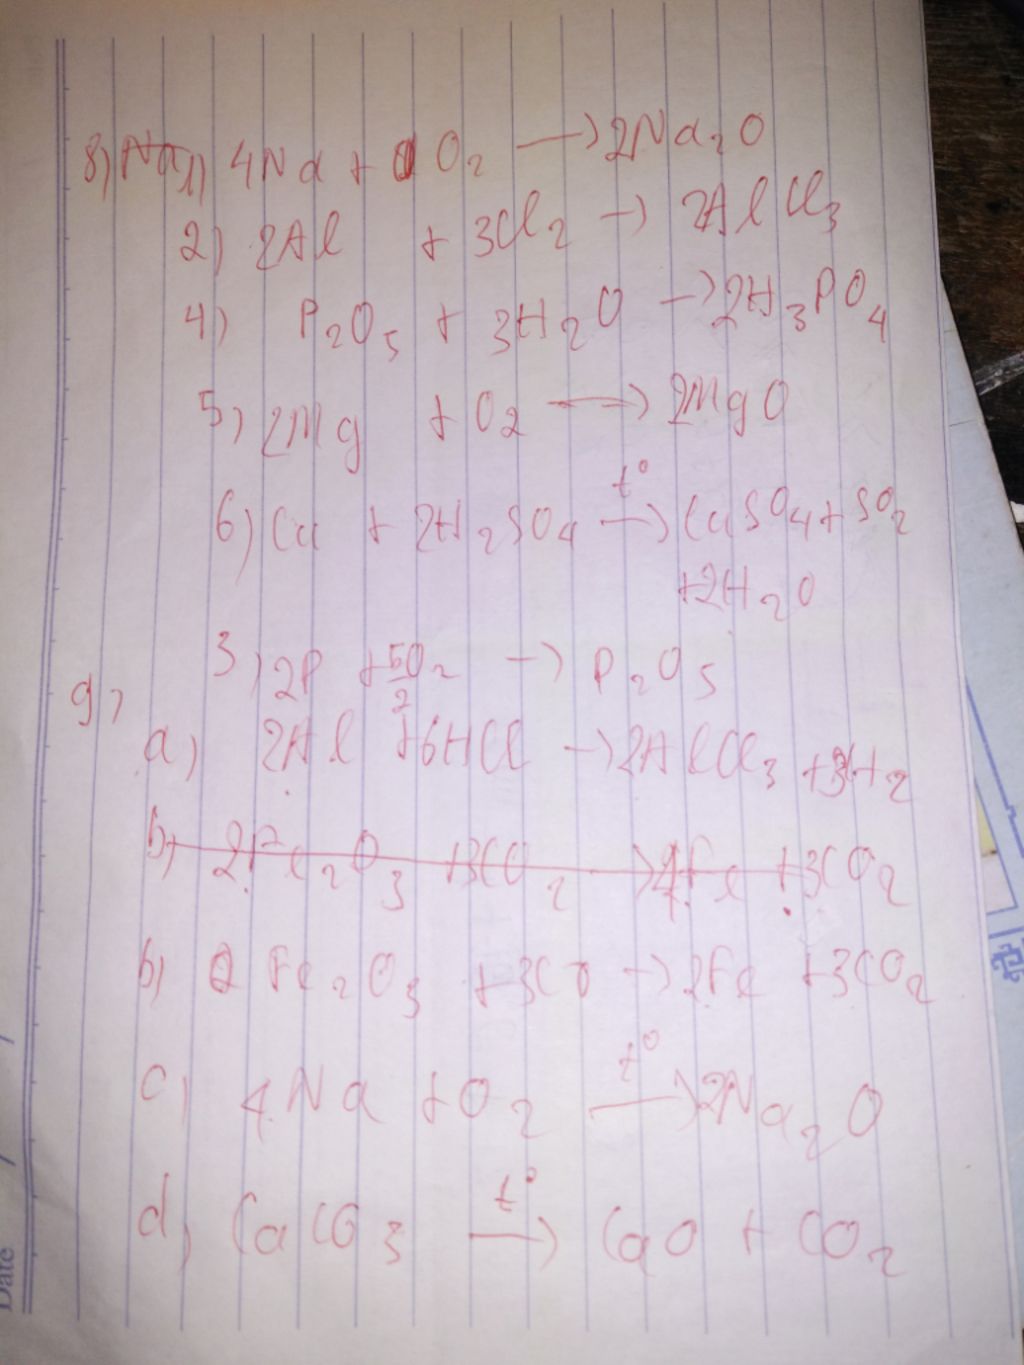 8) Na 1) 4Na + O₂ → 2Na₂O
2) 2Al + 3Cl₂ → 2AlCl₃
4) P₂O₅ + 3H₂O → 2H₃PO₄
5) 2Mg + O₂ → 2MgO
6) Cu + 2H₂SO₄ t° → CuSO₄ + SO₂
+2H₂O
3) 2P + 5O₂/2 → P₂O₅
9)
a) 2Al + 6HCl → 2AlCl₃ + 3H₂
b) 2Fe₂O₃ + 3CO₂ → 4Fe + 3CO₂
b) Fe₂O₃ + 3CO → 2Fe + 3CO₂
c) 4Na + O₂ t° → 2Na₂O
d) CaCO₃ t° → CaO + CO₂
Date